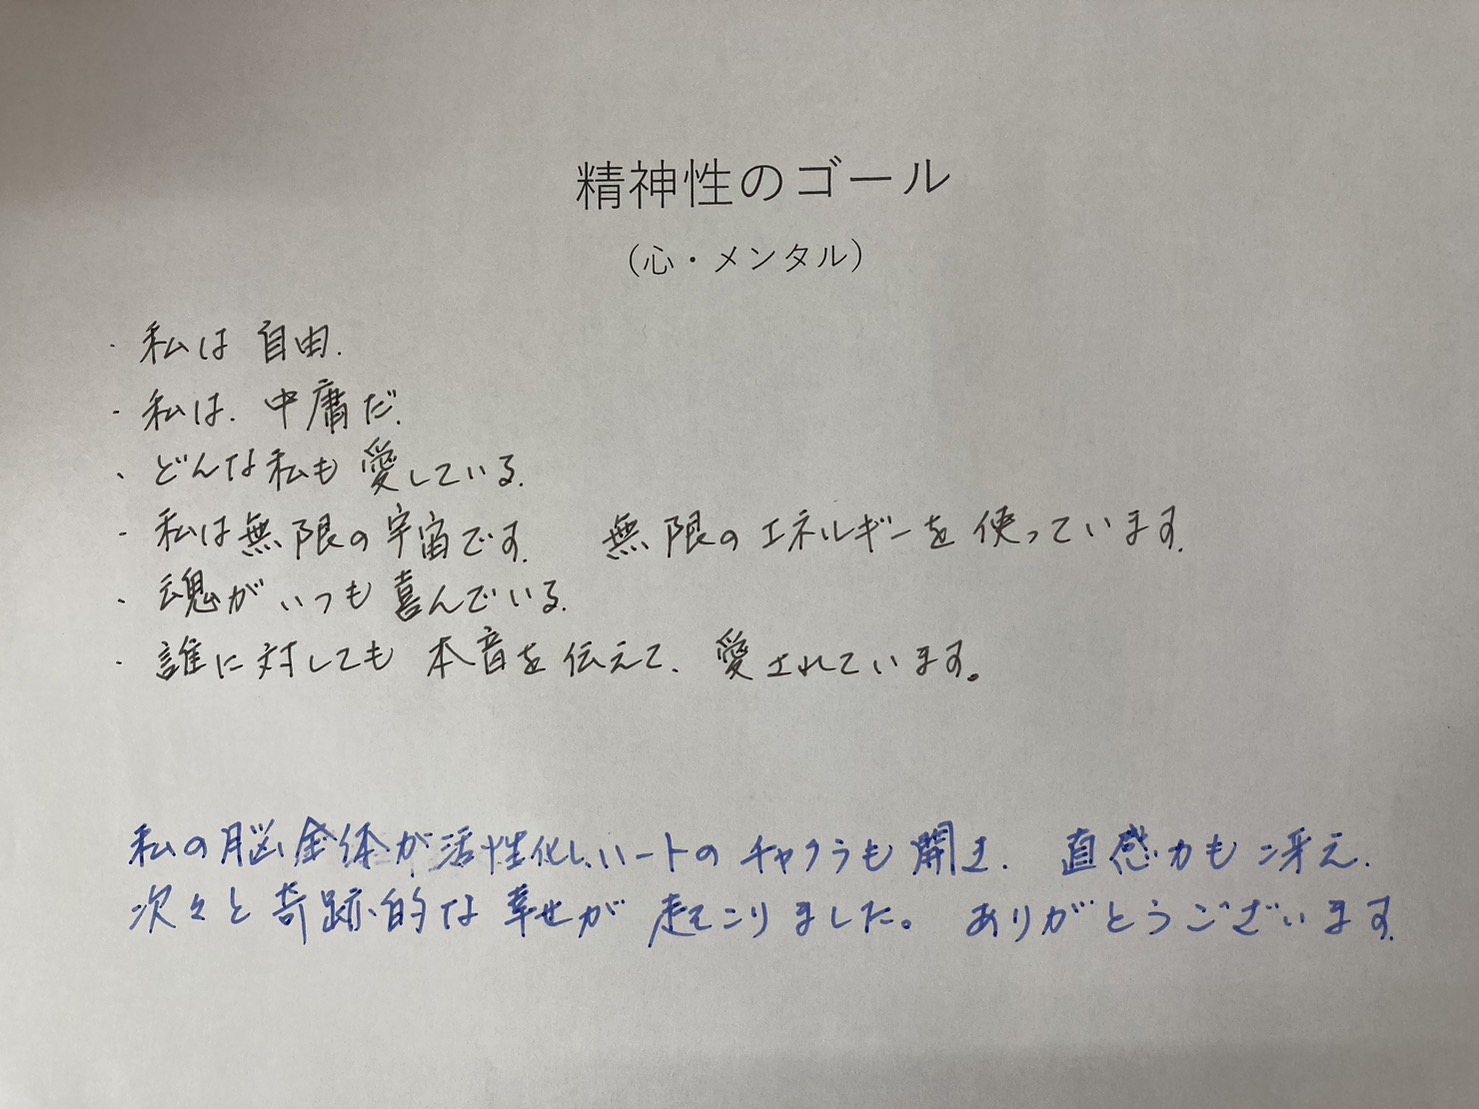 精神性のゴール
（心・メンタル）
・私は自由.
・私は.中庸だ.
・どんな私も愛している.
・私は無限の宇宙です.　無限のエネルギーを使っています.
・魂がいつも喜んでいる.
・誰に対しても本音を伝えて、愛されています。
私の脳全体が活性化し、ハートのチャクラも開き、直感力も冴え、
次々と奇跡的な幸せが起こりました。ありがとうございます.